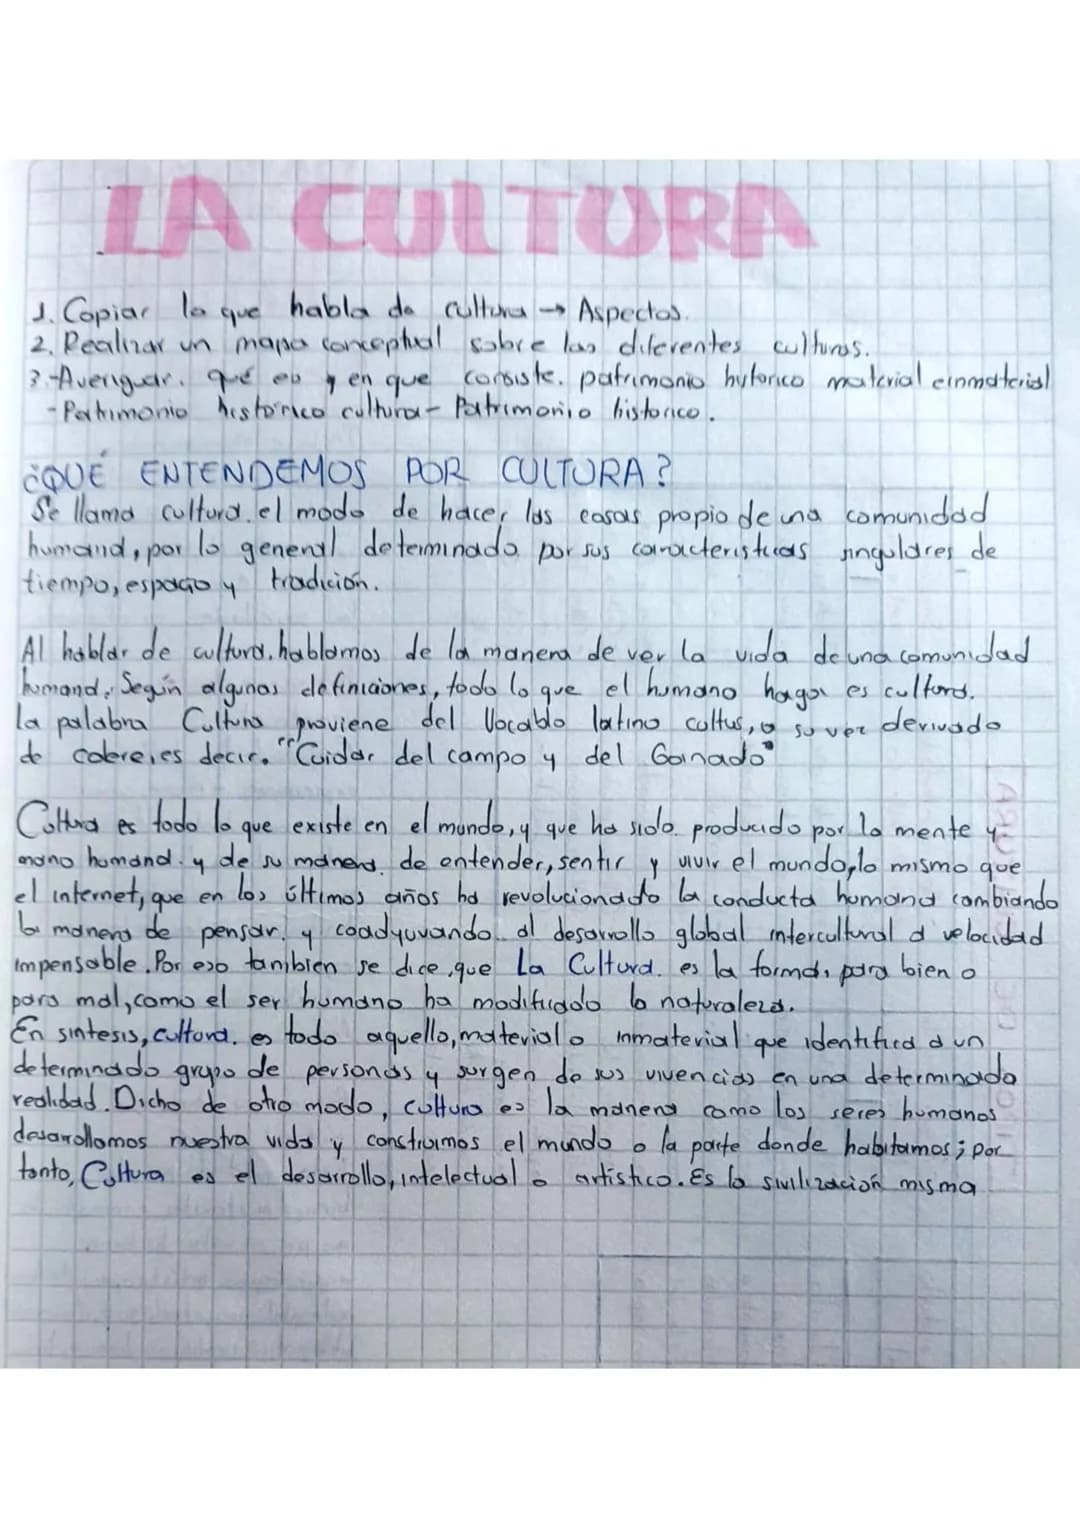 LA CULTURA
1. Copiar lo que habla de cultura → Aspectos.
2. Realizar un mapa conceptual sobre las diferentes culturas.
3.-Averiguar. qué es y en que consiste. patrimonio hytorico material einmaterial
- Patrimonio historico cultura- Patrimonio historico.
¿QUÉ ENTENDEMOS POR CULTURA?
Se llama cultura. el modo de hacer las cosas propio de una comunidad
humana, por lo general determinado por sus caracteristicas singulares de
tiempo, espacio y tradición.
Al hablar de cultura. hablamos de la manera de ver la vida de una comunidad
humana, Según algunas definiciones, todo lo que el humano haga es cultura.
la palabra Cultura proviene del Vocablo latino cultus, a su vez derivado
de colere, es decir. "Cuidar del campo y del Ganado"
Cultura es todo lo que existe en el mundo, y que ha sido producido por la mente y
mano humana. y de su manera de entender, sentir y vivir el mundo, lo mismo que
el internet, que en los últimos años ha revolucionado la conducta humana cambiando
la manera de pensar. y coadyuvando al desarrollo global intercultural a velocidad
impensable. Por eso tanibien se dice, que La Cultura. es la forma, para bien o
para mal, como el ser humano ha modificado la naturaleza.
En sintesis, cultura. es todo aquello, material o inmaterial que identifica a un
determinado grupo de personas y surgen de sus vivencias en una determinada
realidad. Dicho de otro modo, cultura es la manera como los seres humanos
desarrollamos nuestra vida y construimos el mundo o la parte donde habitamos; por
tanto, Cultura es el desarrollo, intelectual o artístico. Es la sivilización misma